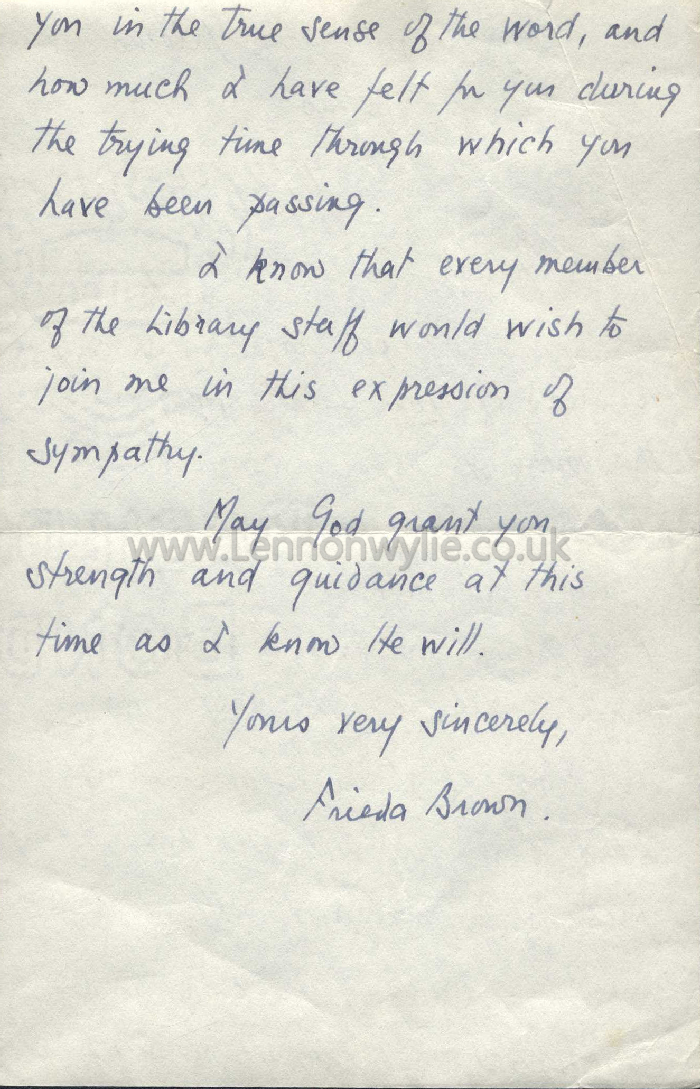 you in the true sense of the word, and
how much I have felt for you during
the trying time through which you
have been passing.
I know that every member
of the Library staff would wish to
join me in this expression of
sympathy.
May God grant you
www.Lennonwylie.co.uk
strength and guidance at this
time as I know He will.
Yours very sincerely,
Frieda Brown.